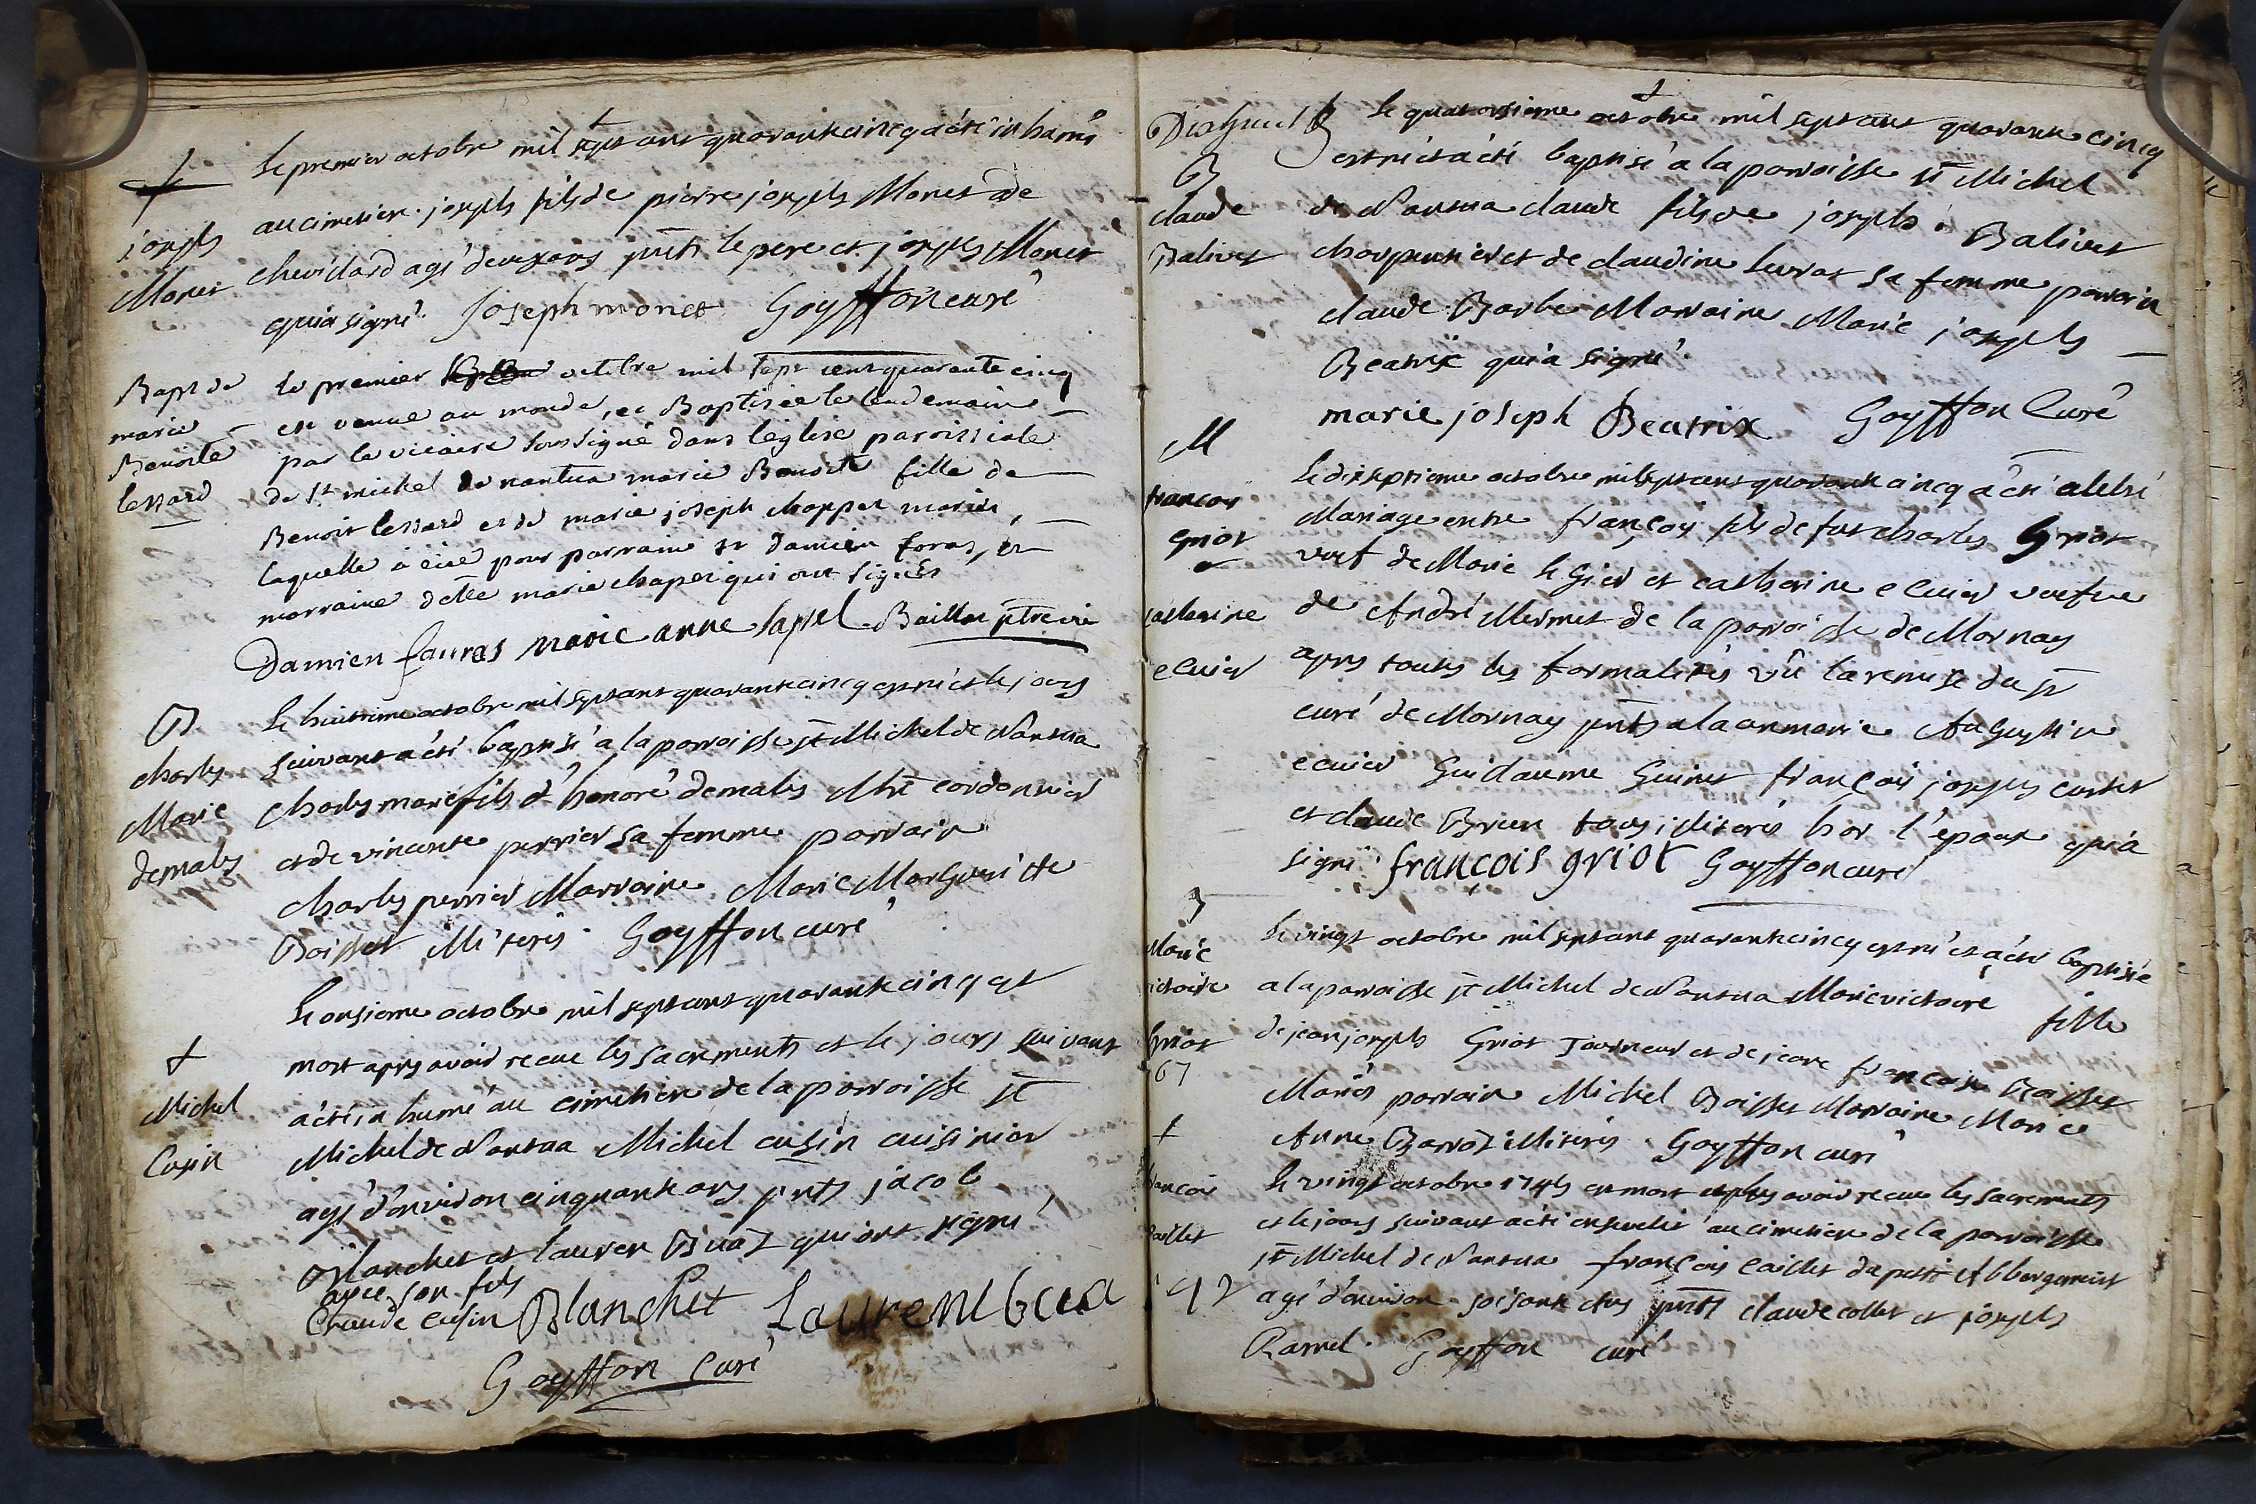 †
joseph
Monet
Le premier octobre mil sept cent quarante cinq a été inhumé
au cimetiere joseph fils de pierre joseph Monet de
chevilard agé deux ans pnts le pere et joseph Monet
qui a signé. Joseph monet Goyffon curé
Bapt de
marie
Benoite
lessard
le premier octobre mil sept cent quarante cinq
est venue au monde, et Baptisée le lendemain
par le vicaire soussigné dans l'eglise paroissiale
de St michel de nantua marie Benoite fille de
Benoit lessard et de marie joseph chappet mariés,
laquelle a eüe pour parrain sr Damien foras, et
marraine dlle marie chapel qui ont signés
Damien fauras marie anne Baillat ptre vic
B
charles
Marie
demales
Le huitieme octobre mil sept cent quarante cinq est né et le jours
suivant a été baptisé a la parroisse st Michel de Nantua
charles marie fils d'honoré demales Mtre cordonnier
et de vincente perrier sa femme parrain
charles perrier Marraine Marie Marguerite
Boisset illiterés. Goyffon curé
†
Michel
Cusin
Le onsieme octobre mil sept cent quarante cinq est
mort apres avoir recue les sacrements et le jours suivant
a été inhumé au cimetiere de la parroisse st
Michel de Nantua Michel cusin cuisinier
agé d'environ cinquante ans pnts jacob
Blanchet et lauren Buaz qui ont signé
avec son fils
Claude cusin Blanchet Laurent bua
Goyffon Curé
B
claude
Balivet
Le quatorsieme octobre mil sept cent quarante cinq
est né et a été baptisé a la parroisse st Michel
de Nantua claude fils de joseph Balivet
charpentier et de claudine levrat sa femme parrain
claude Barbe Marraine Marie joseph
Beatrix qui a signé.
marie joseph Beatrix Goyffon Curé
M
francois
Griot
et
catherine
ecuier
Le dixseptieme octobre mil sept cent quarante cinq a été celebré
Mariage entre françois fils de fut charles Griot
veuf de Marie legier et catherine ecuier veufve
de André Mermet de la parroisse de Mornay
apres toutes les formalités vû la remise du sr
curé de Mornay pnts a la ceremonie Augustin
ecuier Guillaume Guinet françois joseph cartet
et claude Brun tous illiterés hor l'epoux qui a
signé. françois griot Goyffon curé
B
Marie
victoire
Griot
67
Le vingt octobre mil sept cent quarante cinq est né et a été baptisée
a la parroisse st Michel de Nantua Marie victoire fille
de jean joseph Griot Tourneur et de jeane francoise Boisset
Mariés parrain Michel Boisset Marraine Marie
Anne illiterés. Goyffon curé
†
francois
caillet
92
Le vingt octobre 1745 est mort apres avoir recue les sacrements
et le jours suivant a été enseveli au cimetiere de la parroisse
st Michel de Nantua françois caillet du petit Abbergement
agé d'environ soisante ans pnts claude collet et joseph
Ramel. Goyffon curé